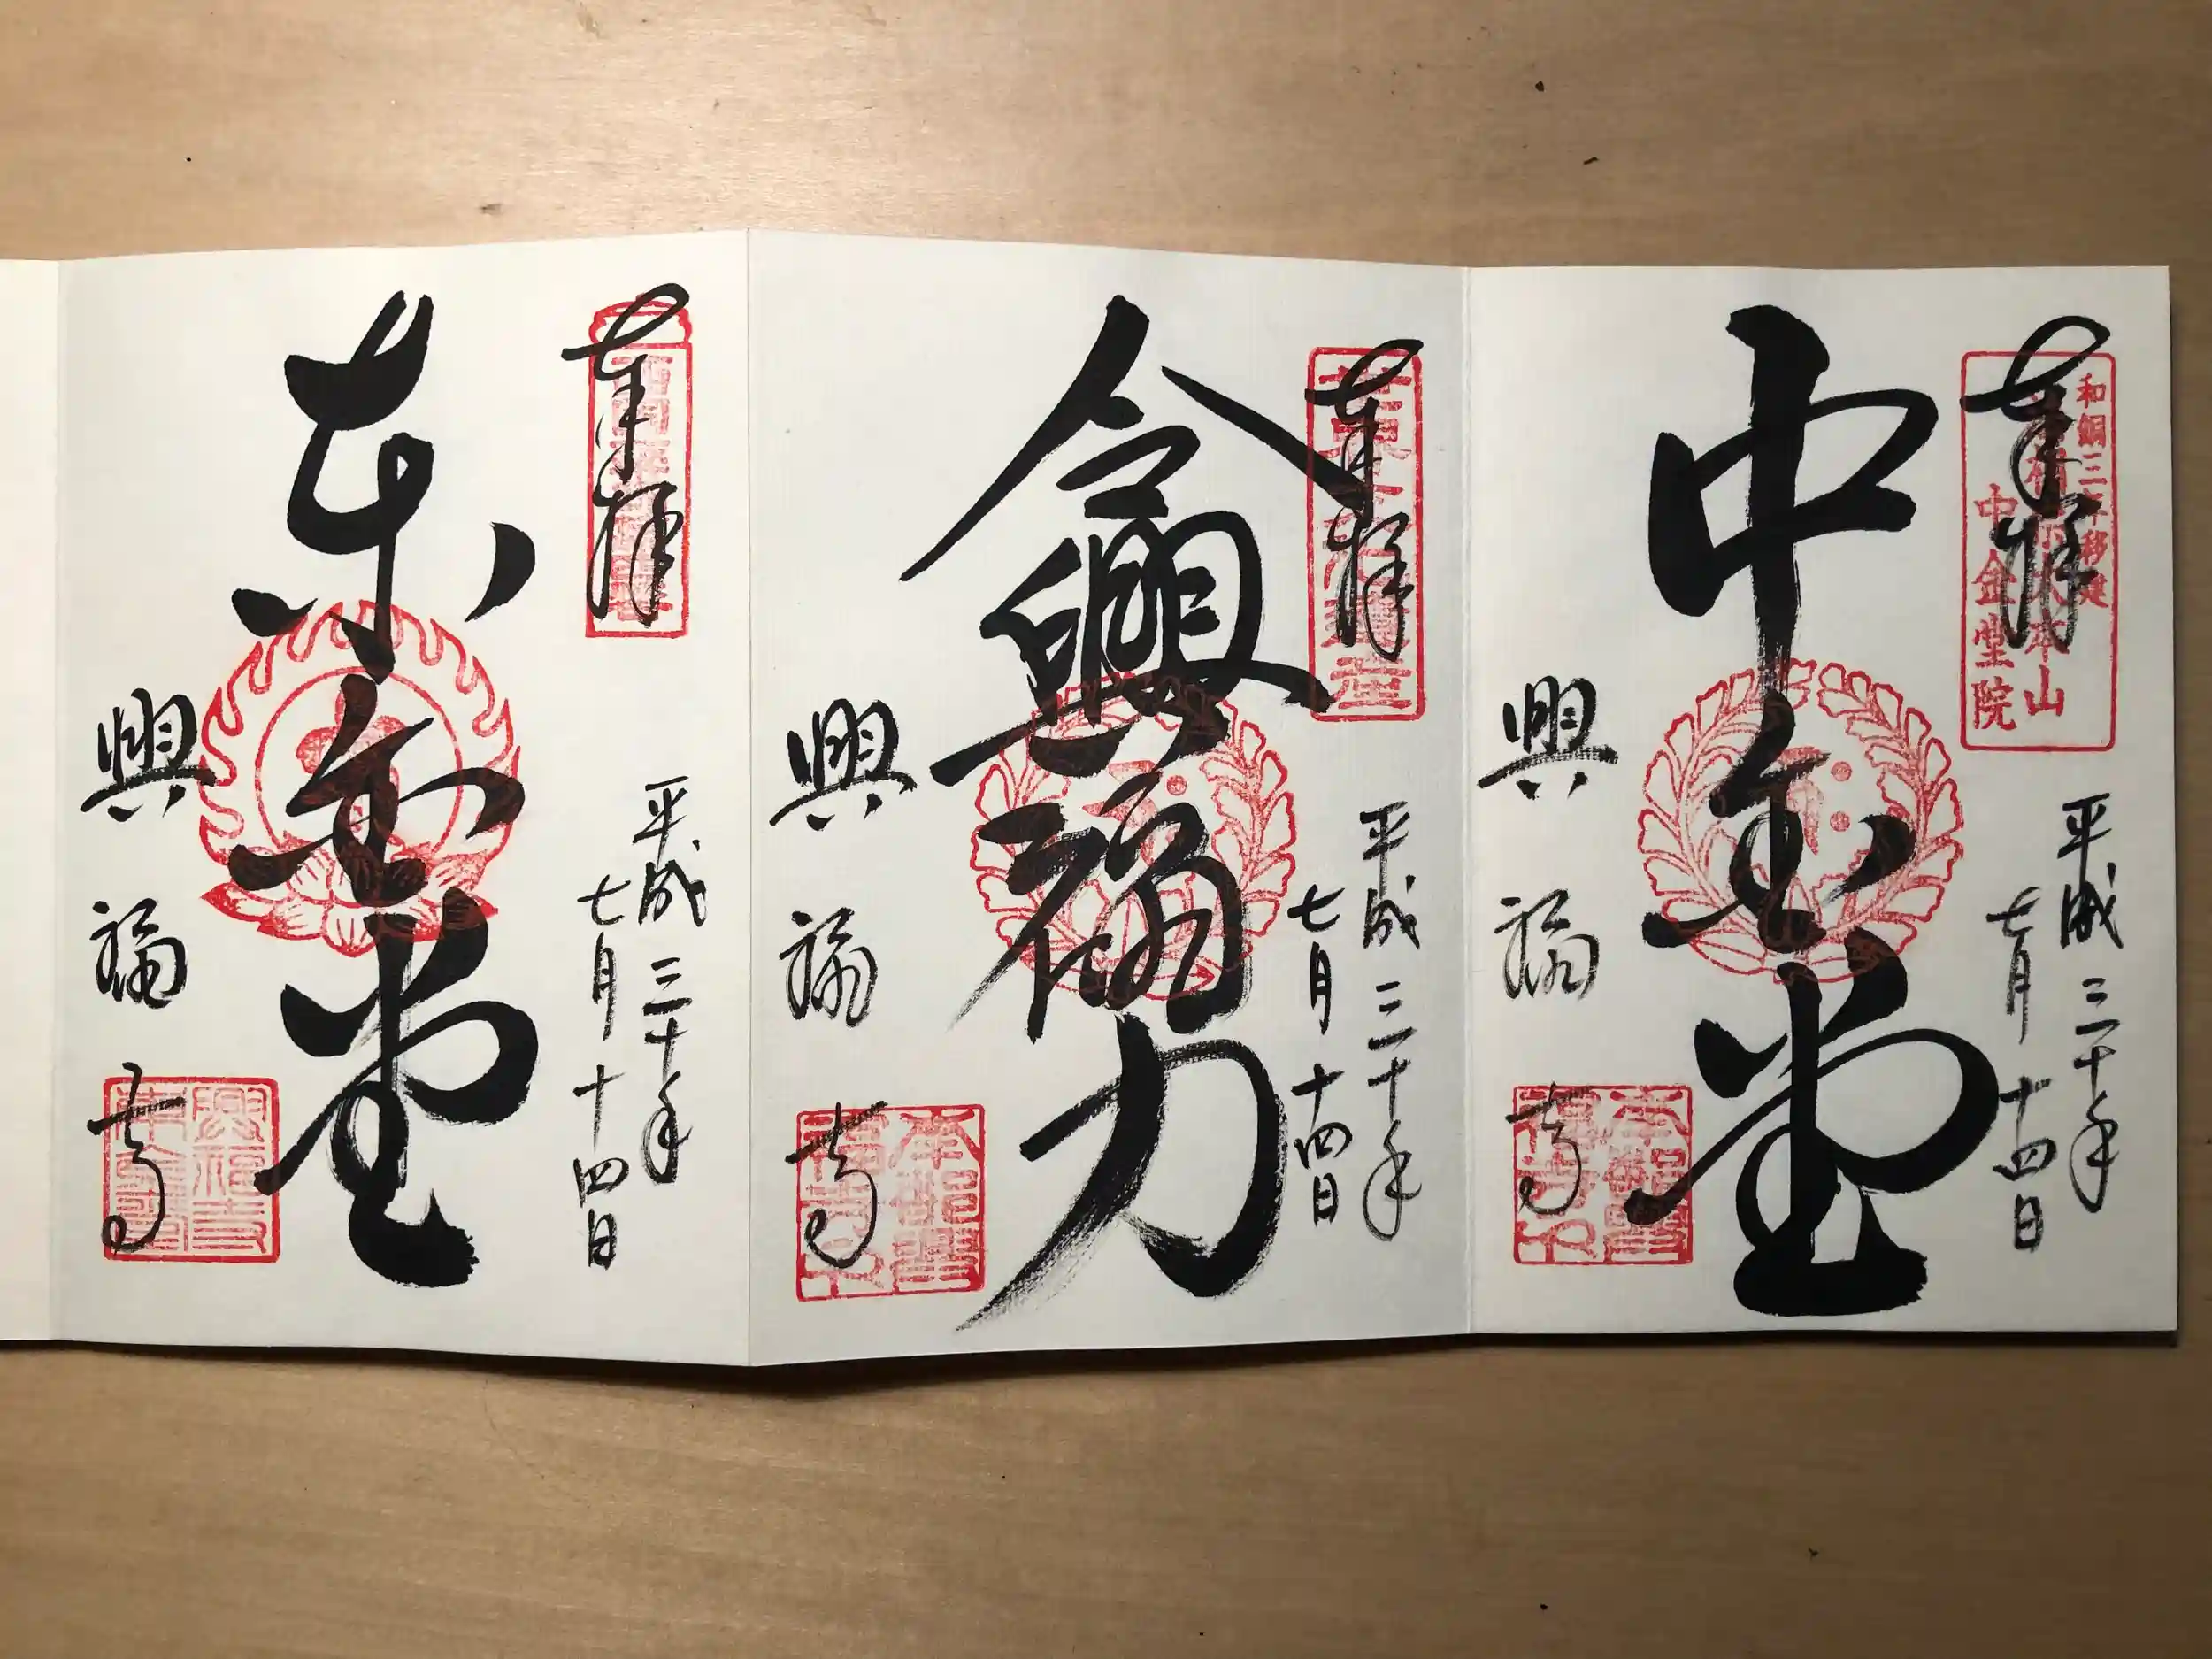 奉拝
和銅三年移建
法相宗大本山
中金堂院
平成三十年
七月十四日
中金堂
興福寺
奉拝
平成三十年
七月十四日
令興福力
興福寺
奉拝
平成三十年
七月十四日
東金堂
興福寺
興福寺
東金堂